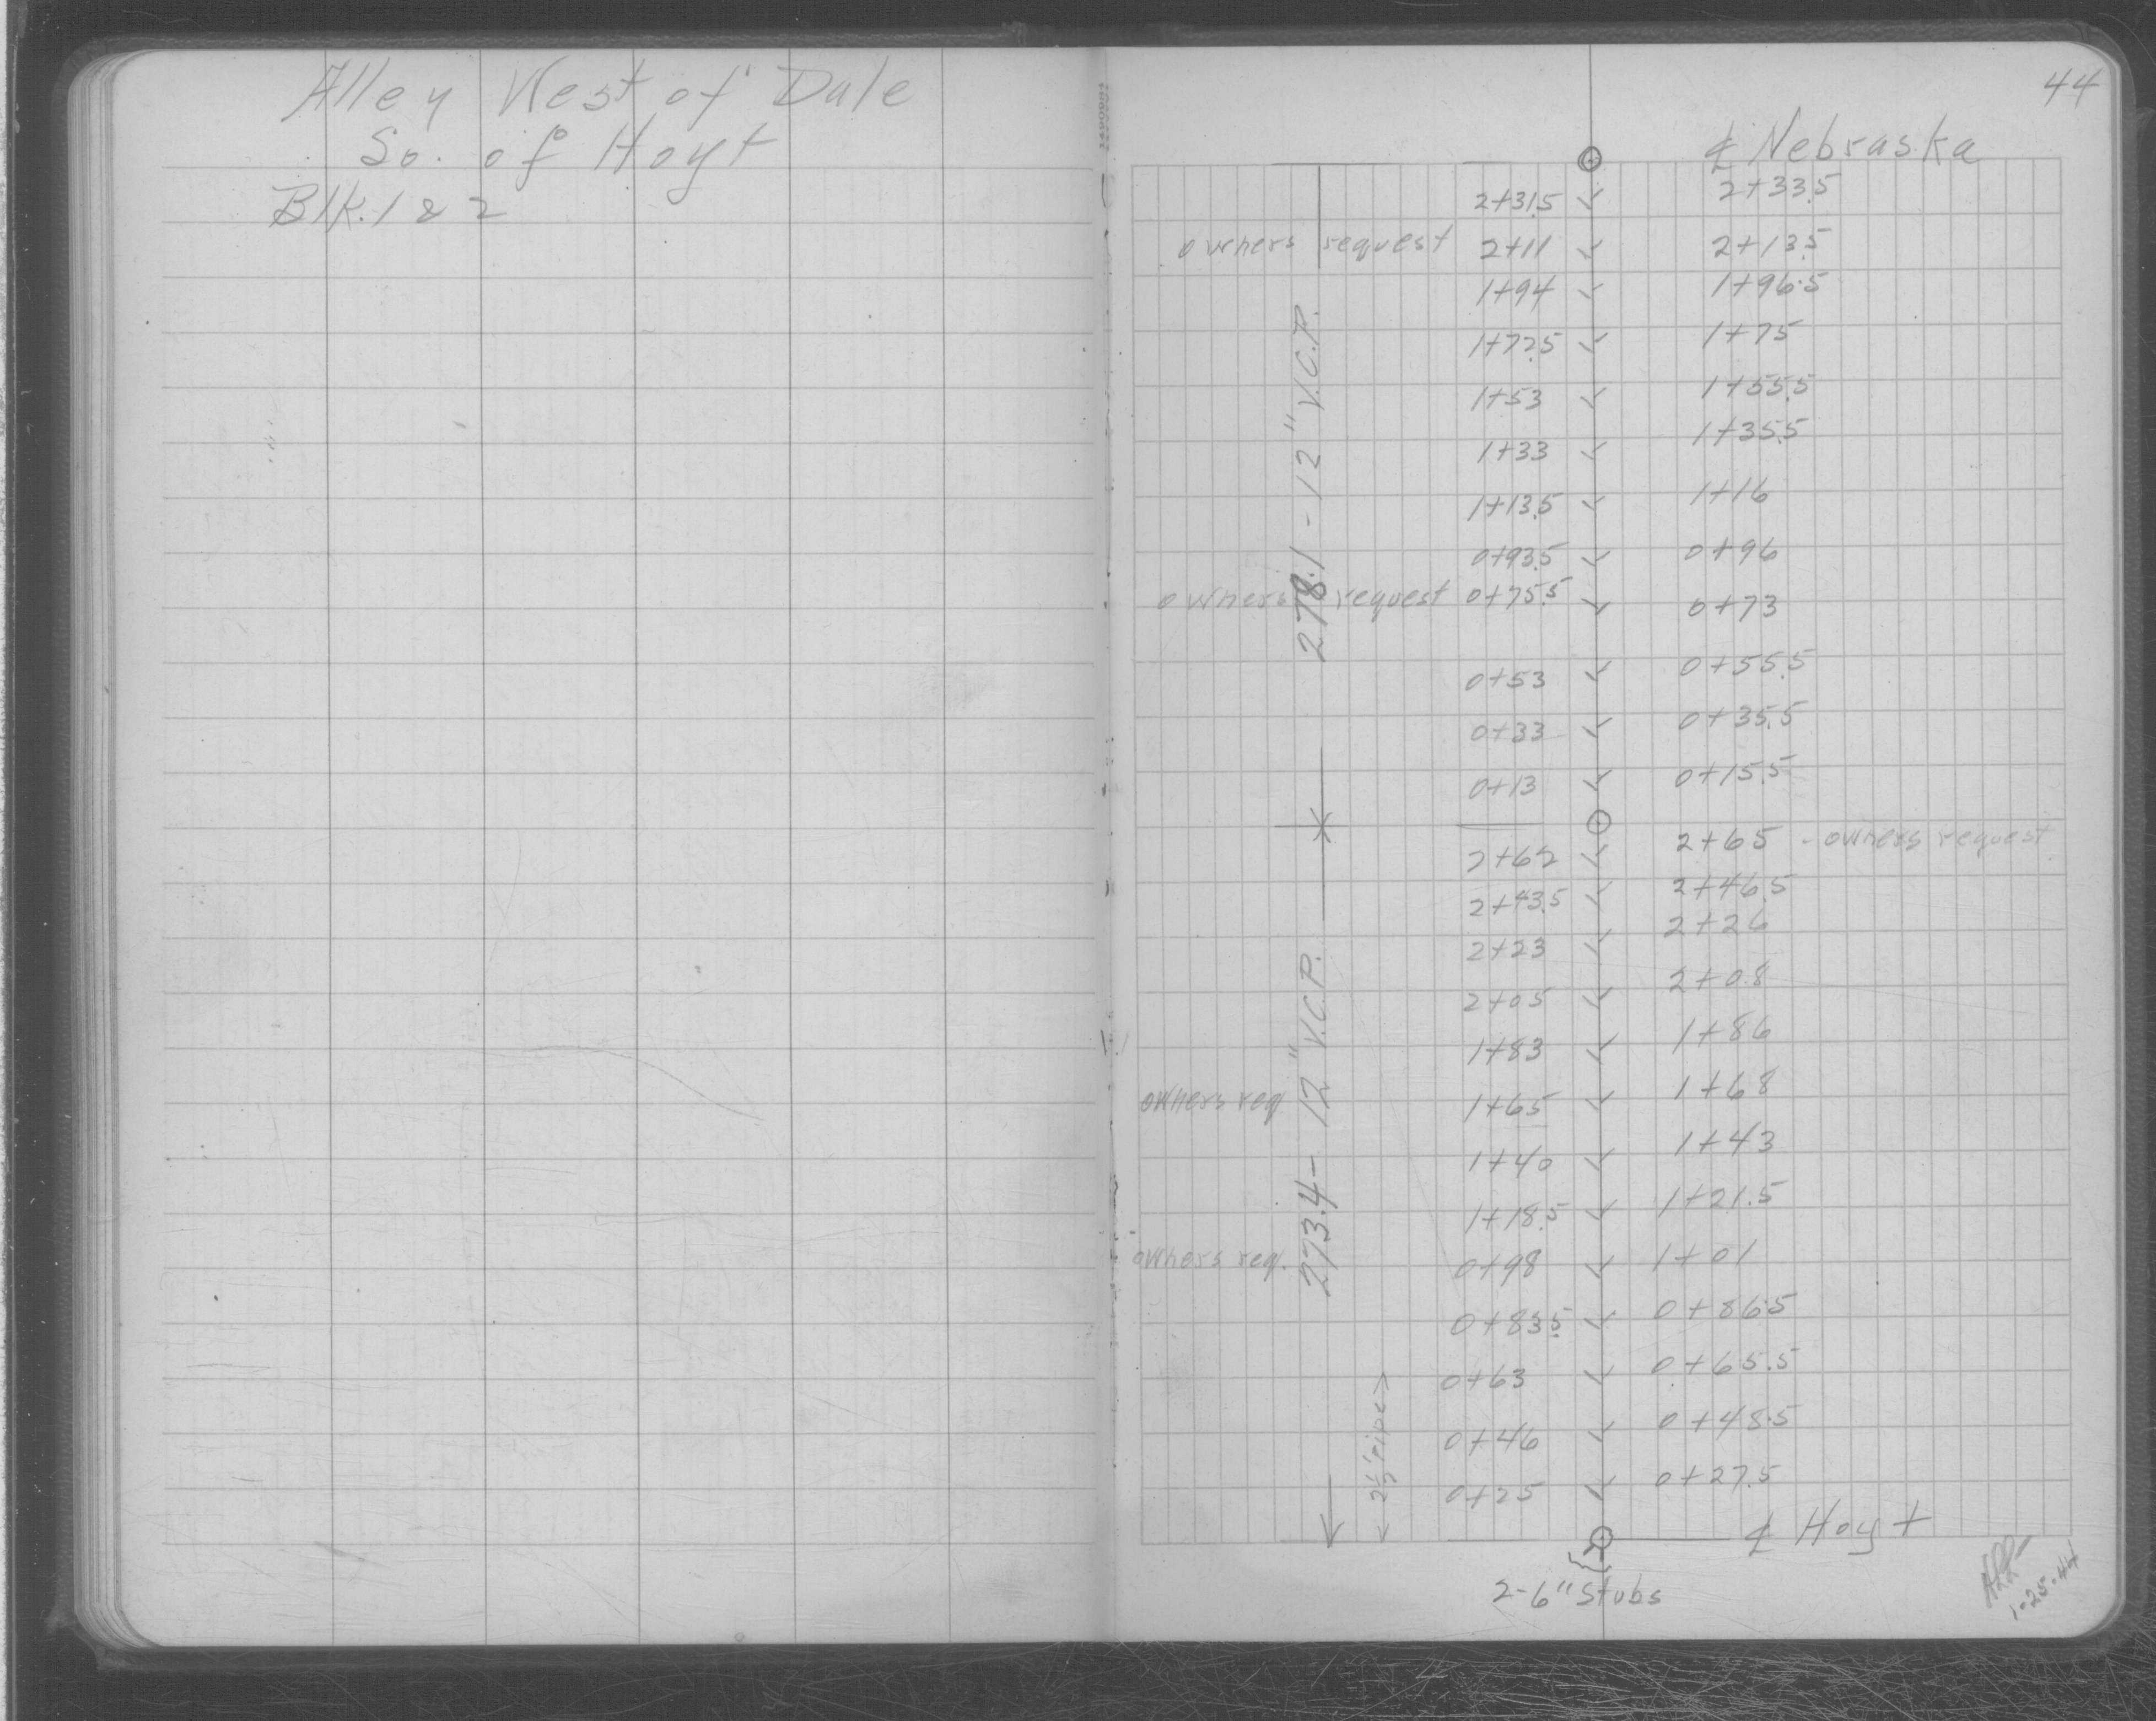 Alley West of Dale
So. of Hoyt
Blk. 1 & 2
44
℄ Nebraska
2+31.5 2+33.5
owners request 2+11 2+13.5
1+94 1+96.5
1+72.5 1+75
1+53 1+55.5
1+33 1+35.5
1+13.5 1+16
0+93.5 0+96
owners request 0+75.5 0+73
0+53 0+55.5
0+33 0+35.5
0+13 0+15.5
278.1 - 12" V.C.P.
2+62 2+65 - owners request
2+43.5 2+46.5
2+23 2+26
2+05 2+08
1+83 1+86
owners req. 1+65 1+68
1+40 1+43
1+18.5 1+21.5
owners req. 0+98 1+01
0+83.5 0+86.5
0+63 0+65.5
0+46 0+48.5
0+25 0+27.5
273.4 - 12" V.C.P.
2½' pipe
℄ Hoyt
2-6" Stubs
1-25-44